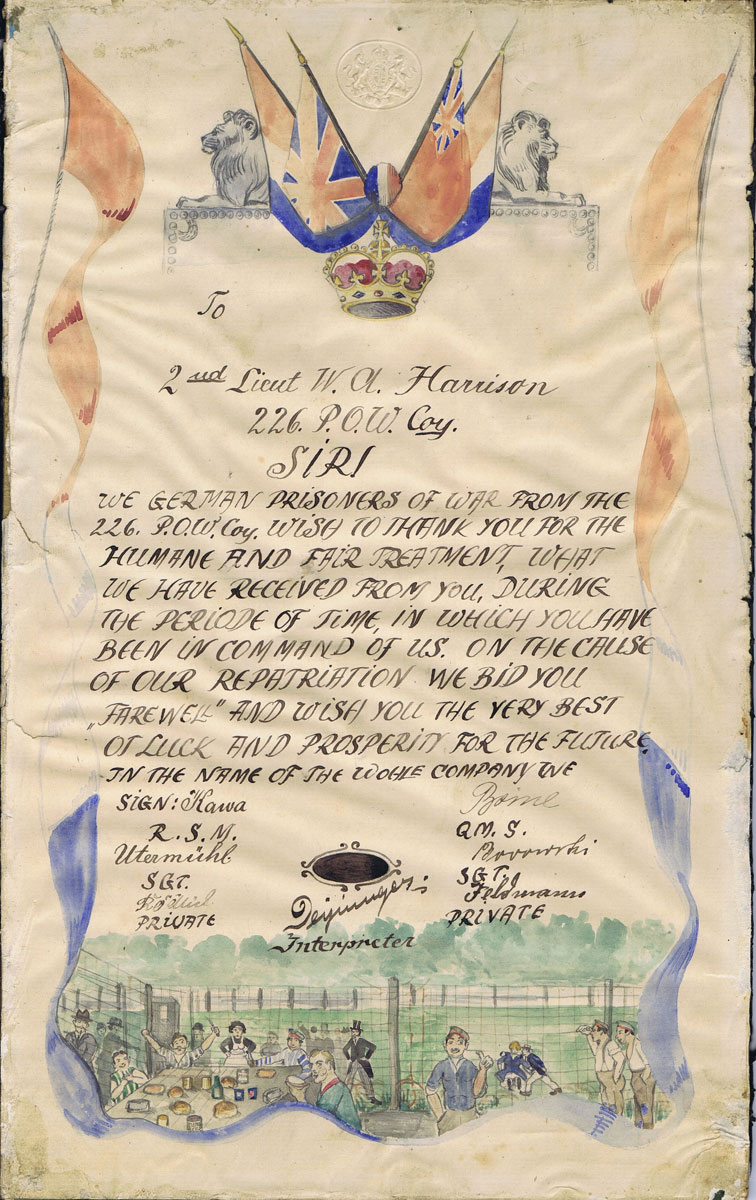 To
2nd Lieut W. A. Harrison
226. P.O.W. Coy.
SIR!
WE GERMAN PRISONERS OF WAR FROM THE
226. P.O.W. Coy. WISH TO THANK YOU FOR THE
HUMANE AND FAIR TREATMENT, WHAT
WE HAVE RECEIVED FROM YOU, DURING
THE PERIODE OF TIME, IN WHICH YOU HAVE
BEEN IN COMMAND OF US. ON THE CAUSE
OF OUR REPATRIATION WE BID YOU
„FAREWELL" AND WISH YOU THE VERY BEST
OF LUCK AND PROSPERITY FOR THE FUTURE.
IN THE NAME OF THE WOHLE COMPANY WE
SIGN: Kawa
R.S.M.
Q.M.S.
Utermühl
Borowski
SGT.
SGT.
Feldmann
PRIVATE
PRIVATE
Interpreter